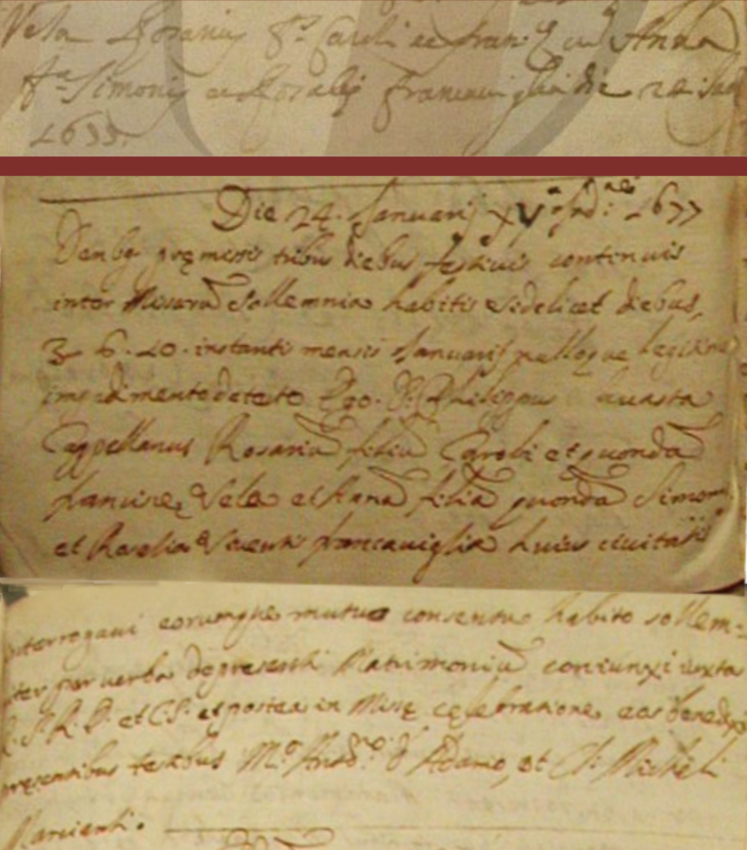 Vela Rosariẏ f.s Caroli ac Fran.ę cũ Anna
f.a Simonis ac Rosaliẹ Francaviglia die 24 Jan
1677.
Die 24. Januarij XV.ẹ Ind: 1677
Denbus premissis tribus diebus festivis continuis
inter Missarũ sollemnia habitis videlicet diebus,
3. 6. 10. instanti mensis Januarij nulloque legitimo
impedimento detecto Ego D. Philippus
Cappellanus Rosariũ filiũ Caroli et quondã
Francisce Vele et Annã filiã quondã Simonis
et Rosalia Francaviglia huius civitatis
interrogavi eorumque mutuo consensu habito sollem=
iter per verba de presenti Matrimoniũ coniunxi iuxta
S. R. E. et postea in Misse celebratione eos benedixi
presentibus testibus M.o And.o d'Adamo, et Cl. Micheli